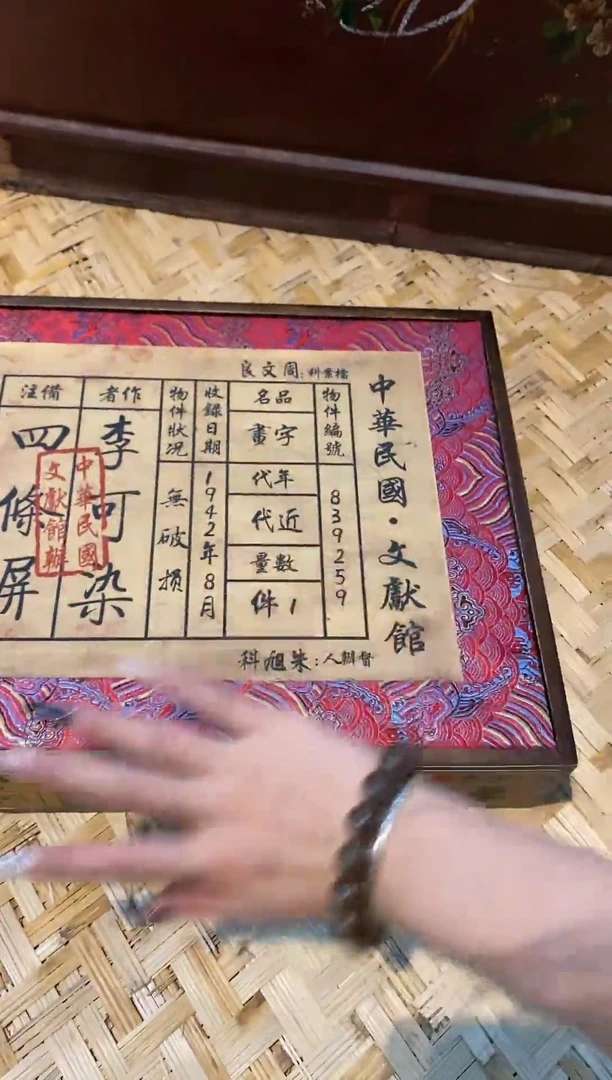 中華民國·文獻館
檔案科:周文良
物件編號
839259
品名
字畫
年代
近代
數量
1件
收錄日期
1942年8月
物件狀况
無破损
作者
李可染
備注
四條屏
中華民國
文獻館辦
督辦人:朱旭科